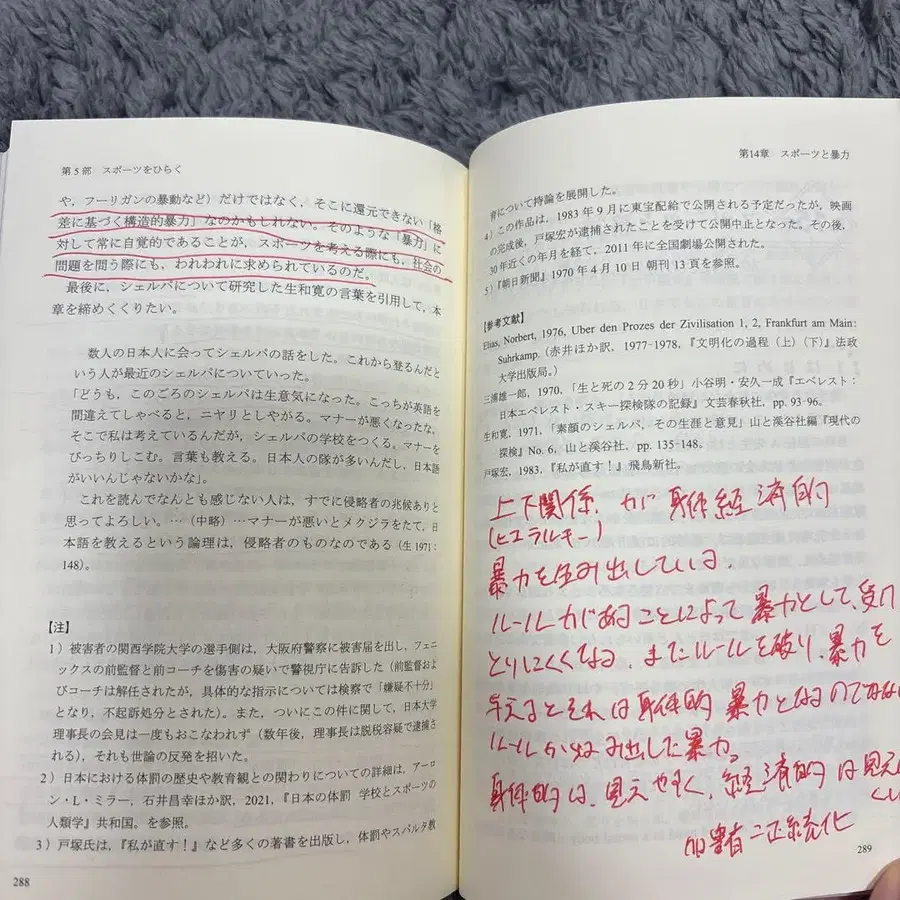 第5部　スポーツをひらく
や，フーリガンの暴動など）だけではなく，そこに還元できない「格
差に基づく構造的暴力」なのかもしれない。そのような「暴力」に
対して常に自覚的であることが，スポーツを考える際にも，社会の
問題を問う際にも，われわれに求められているのだ。
最後に，シェルパについて研究した生和寛の言葉を引用して，本
章を締めくくりたい。
数人の日本人に会ってシェルパの話をした。これから登るんだと
いう人が最近のシェルパについていった。
「どうも，このごろのシェルパは生意気になった。こっちが英語を
間違えてしゃべると，ニヤリとしやがる。マナーが悪くなったな。
そこで私は考えているんだが，シェルパの学校をつくる。マナーを
びっちりしこむ。言葉も教える。日本人の隊が多いんだし，日本語
がいいんじゃないかな」。
これを読んでなんとも感じない人は，すでに侵略者の兆候ありと
思ってよろしい。…（中略）…マナーが悪いとメクジラをたて，日
本語を教えるという論理は，侵略者のものなのである（生 1971：
148）。
【注】
1）被害者の関西学院大学の選手側は，大阪府警察に被害届を出し，フェニ
ックスの前監督と前コーチを傷害の疑いで警視庁に告訴した（前監督およ
びコーチは解任されたが，具体的な指示については検察で「嫌疑不十分」
となり，不起訴処分とされた）。また，ついにこの件に関して，日本大学
理事長の会見は一度もおこなわれず（数年後，理事長は脱税容疑で逮捕さ
れる），それも世論の反発を招いた。
2）日本における体罰の歴史や教育観との関わりについての詳細は，アーロ
ン・L・ミラー，石井昌幸ほか訳，2021，『日本の体罰　学校とスポーツの
人類学』共和国。を参照。
3）戸塚氏は，『私が直す！』など多くの著書を出版し，体罰やスパルタ教
288
第14章　スポーツと暴力
育について持論を展開した。
4）この作品は，1983年9月に東宝配給で公開される予定だったが，映画
の完成後，戸塚宏が逮捕されたことを受けて公開中止となった。その後，
30年近くの年月を経て，2011年に全国劇場公開された。
5）『朝日新聞』1970年4月10日 朝刊13頁を参照。
【参考文献】
Elias, Norbert, 1976, Uber den Prozes der Zivilisation 1, 2, Frankfurt am Main:
Suhrkamp.（赤井ほか訳，1977-1978，『文明化の過程（上）（下）』法政
大学出版局。）
三浦雄一郎，1970，「生と死の2分20秒」小谷明・安久一成『エベレスト：
日本エベレスト・スキー探検隊の記録』文芸春秋社，pp. 93-96.
生和寛，1971，「素顔のシェルパ，その生涯と意見」山と渓谷社編『現代の
探検』No. 6，山と渓谷社，pp. 135-148.
戸塚宏，1983，『私が直す！』飛鳥新社。
上下関係 が 身体経済的
(ヒエラルキー)
暴力を生み出している。
ルールがあることによって暴力として、受け
とりにくくなる。またルールを破り、暴力を
与えるとそれは身体的暴力となるのではない
ルールが生み出した暴力。
身体的は、見えやすく、経済的は見え
くい
加害者＝正統化
289